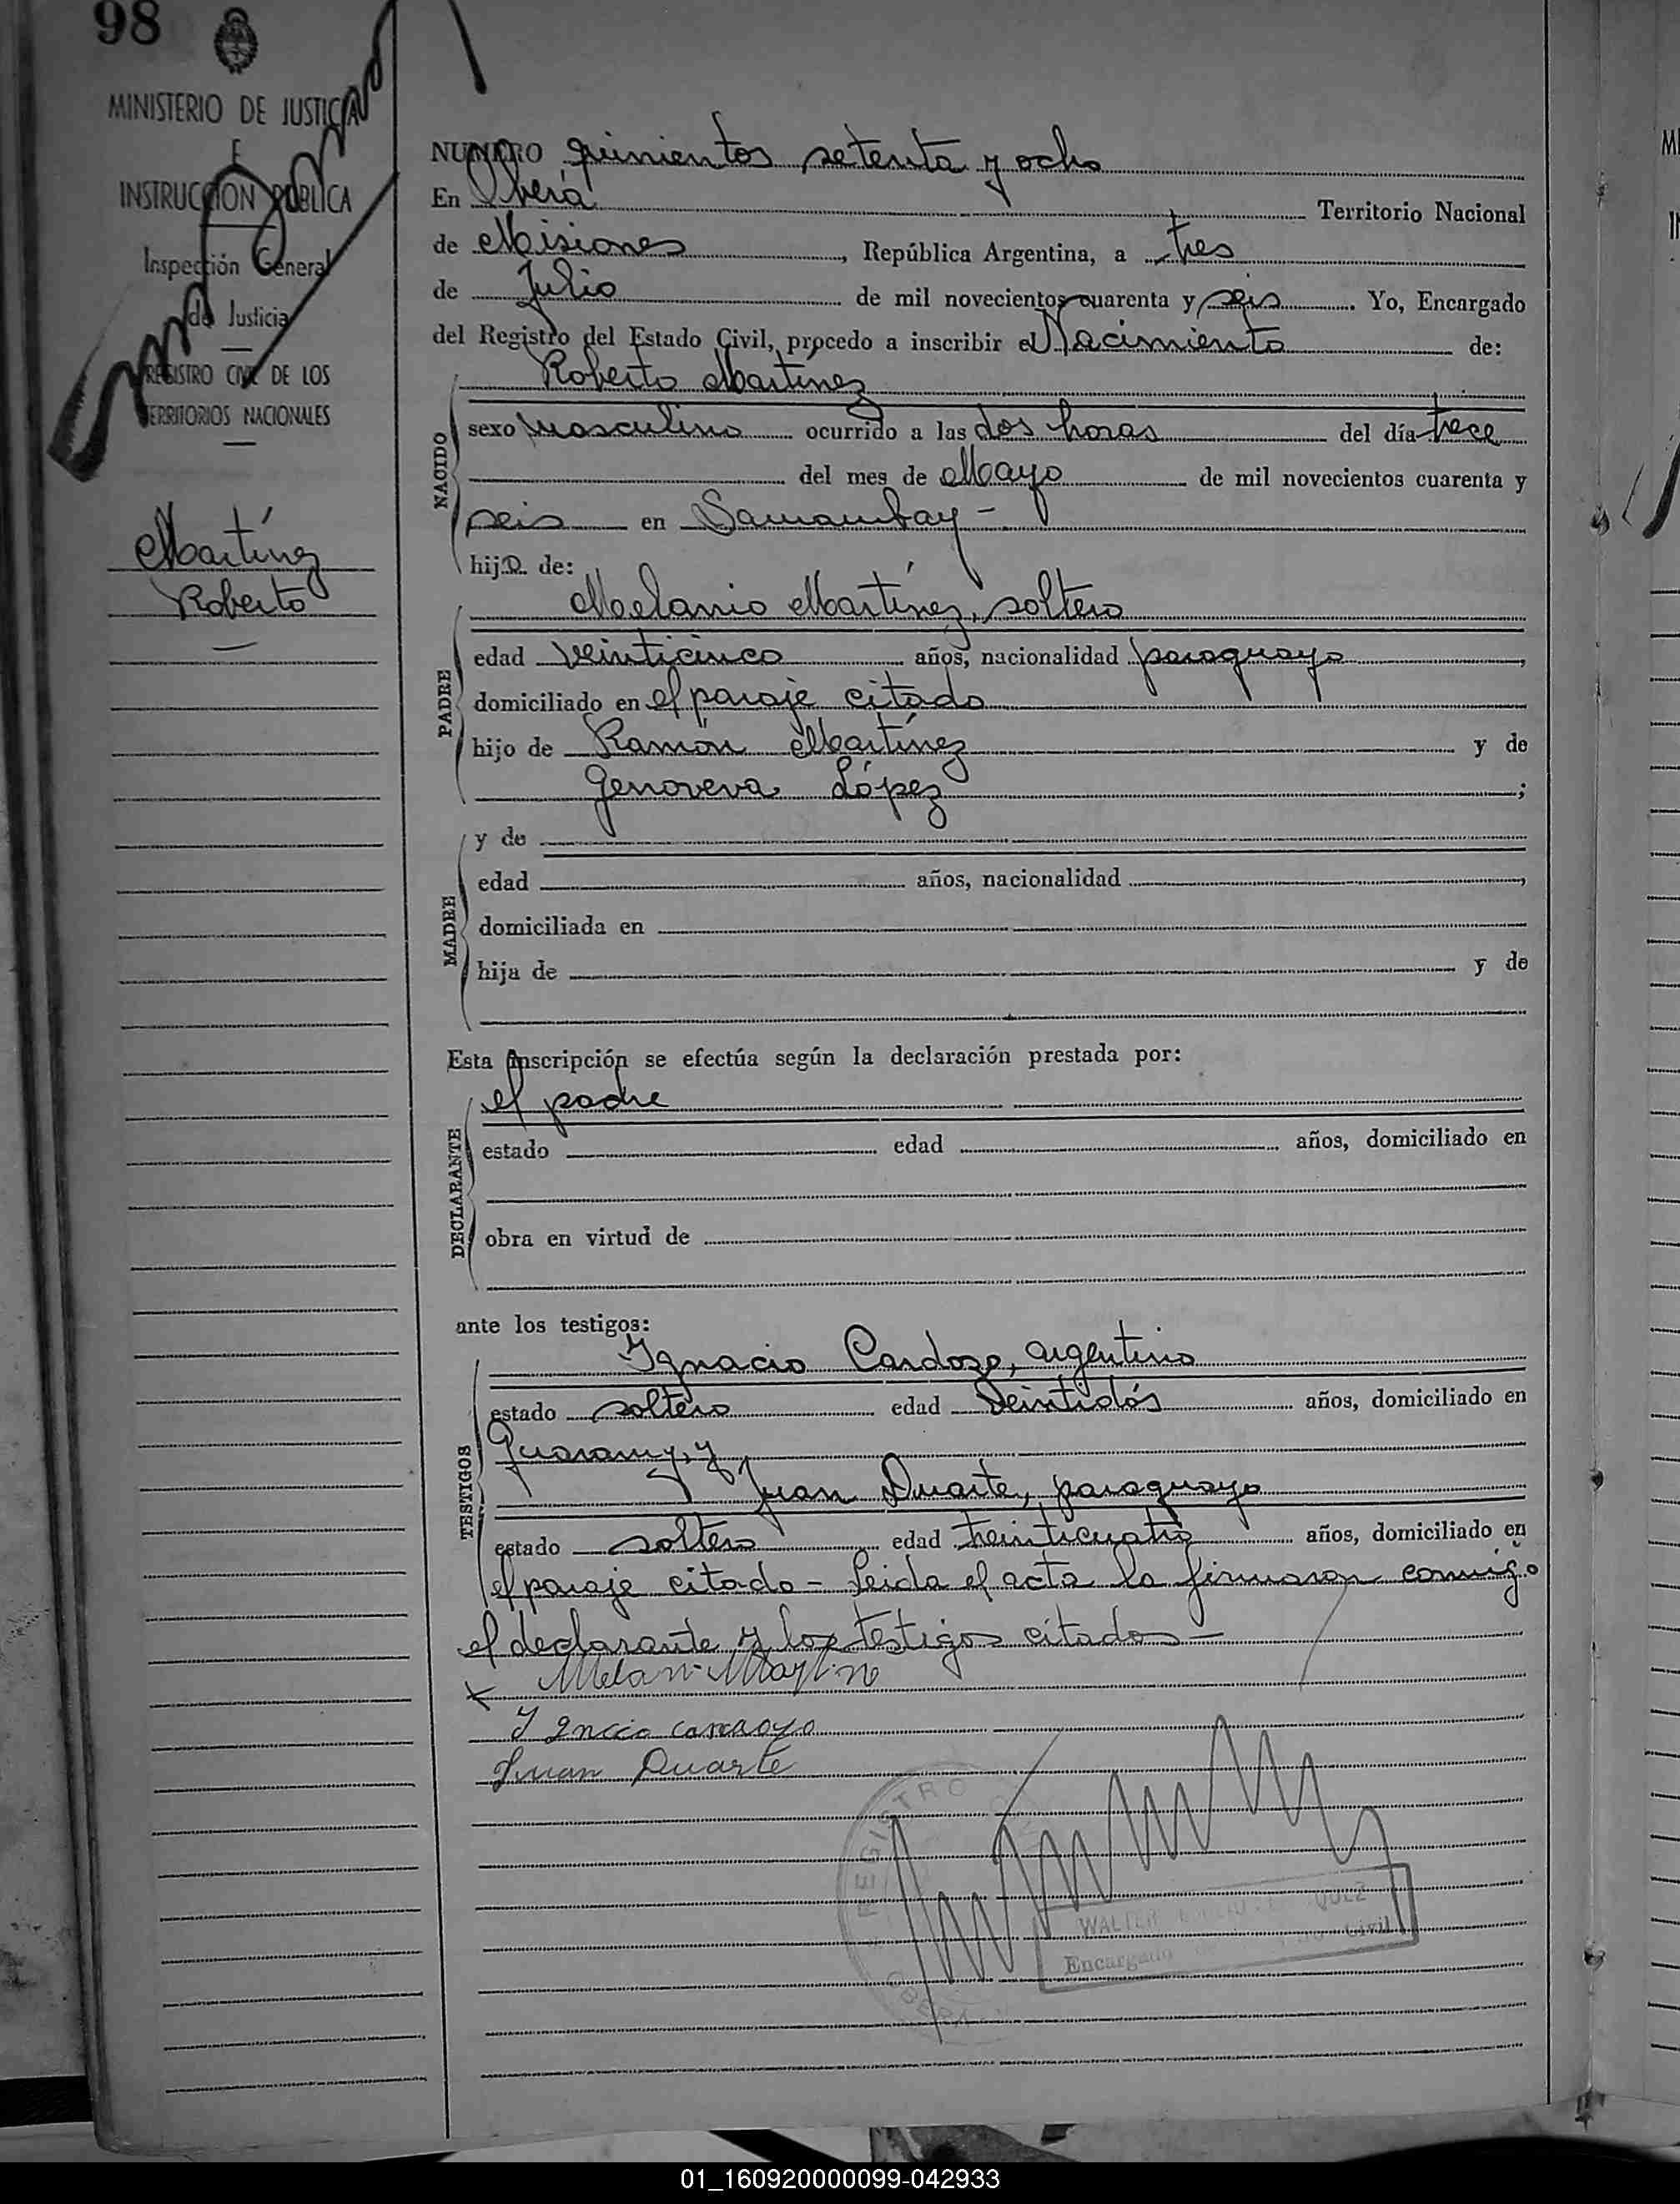 98
MINISTERIO DE JUSTICIA
E
INSTRUCCIÓN PÚBLICA
Inspección General
de Justicia
REGISTRO CIVIL DE LOS
TERRITORIOS NACIONALES
Martínez
Roberto
NUMERO quinientos setenta y ocho
En Oberá Territorio Nacional
de Misiones, República Argentina, a tres
de Julio de mil novecientos cuarenta y seis. Yo, Encargado
del Registro del Estado Civil, procedo a inscribir el Nacimiento de:
Roberto Martinez
NACIDO
sexo masculino ocurrido a las dos horas del día trece
del mes de Mayo de mil novecientos cuarenta y
seis en Samambay -
hijo de:
Melanio Martínez, soltero
PADRE
edad veinticinco años, nacionalidad paraguayo,
domiciliado en el paraje citado
hijo de Ramón Martínez y de
Genoveva López;
MADRE
y de
edad años, nacionalidad,
domiciliada en
hija de y de
Esta inscripción se efectúa según la declaración prestada por:
el padre
DECLARANTE
estado edad años, domiciliado en
obra en virtud de
ante los testigos:
Ignacio Cardozo, argentino
TESTIGOS
estado soltero edad veintidós años, domiciliado en
Guarany, y
Juan Duarte, paraguayo
estado soltero edad treinticuatro años, domiciliado en
el paraje citado - Leida el acta la firmaron conmigo
el declarante y los testigos citados -
x Melani Maytine
Juan Duarte
REGISTRO
OBERA
WALTER
Encargado de Civil
01_160920000099-042933